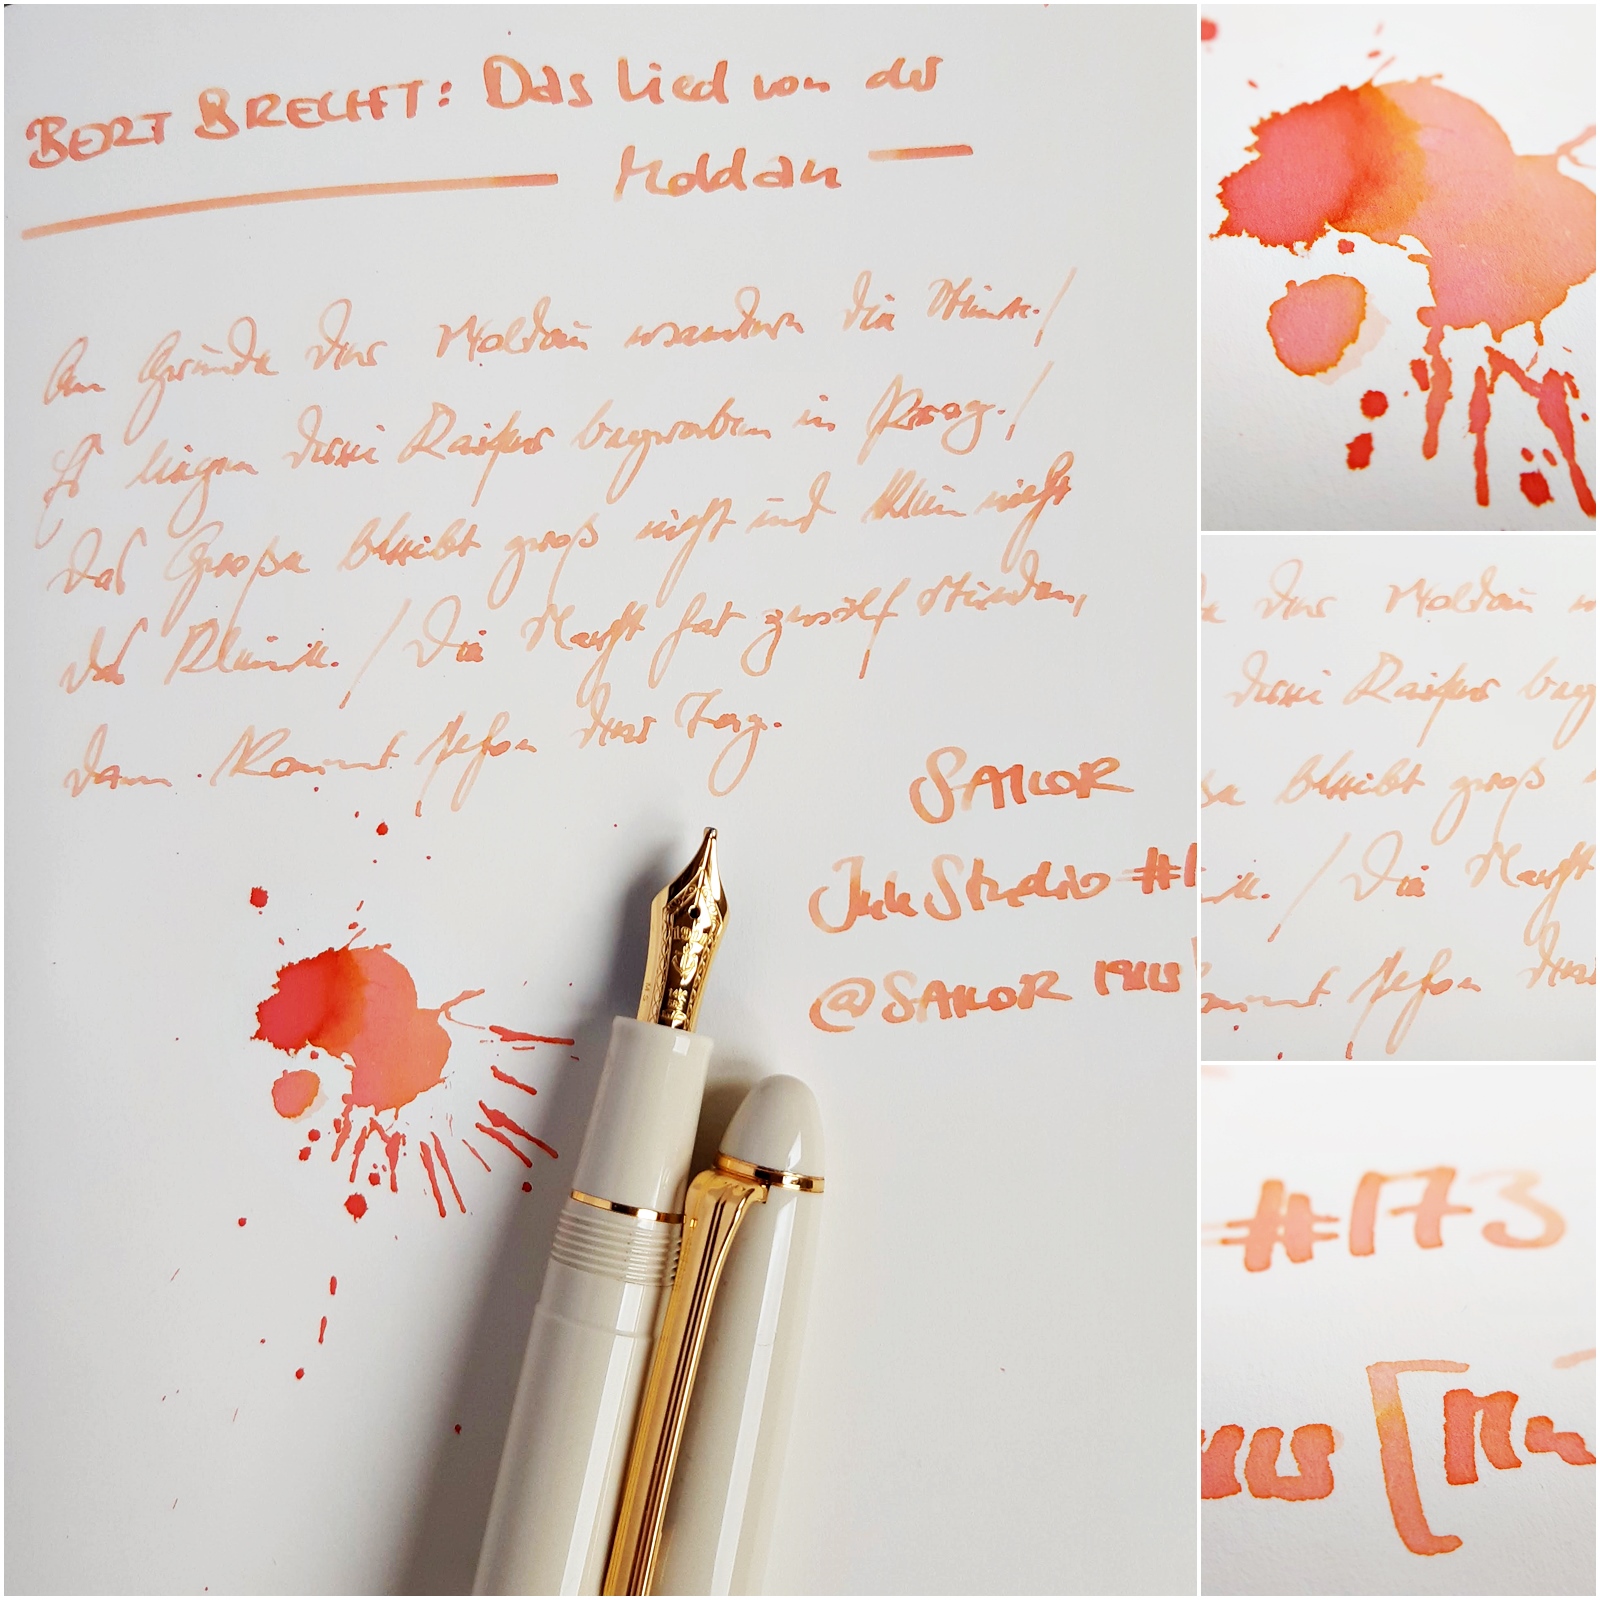 BERT BRECHT: Das Lied von der
Moldau
Am Grunde der Moldau wandern die Steine./
Es liegen drei Kaiser begraben in Prag./
Das Große bleibt groß nicht und klein nicht
das Kleine./Die Nacht hat zwölf Stunden,
dann kommt schon der Tag.
SAILOR
Ink Studio #1
@SAILOR
der Moldau
drei Kaiser
bleibt groß
/ Die Nacht
schon der
#173